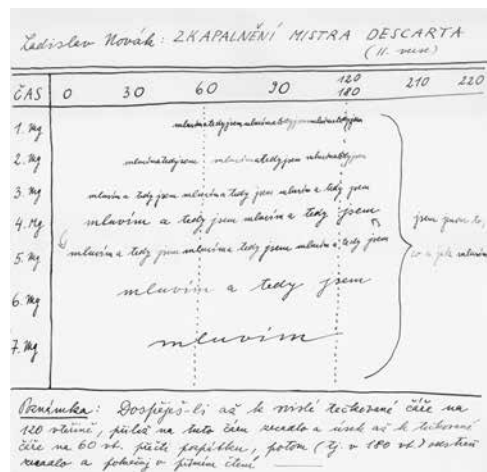 Ladislav Novák: ZKAPALNĚNÍ MISTRA DESCARTA
(II. verse)
ČAS 0 30 60 90 120 180 210 220
1. Mg mluvímatedyjsemmluvímatedyjsemmluvímatedyjsem
2. Mg mluvímatedyjsem mluvímatedyjsem mluvímatedyjsem
3. Mg mluvím a tedy jsem mluvím a tedy jsem mluvím a tedy jsem
4. Mg mluvím a tedy jsem mluvím a tedy jsem
jsem pouze to,
5. Mg mluvím a tedy jsem mluvím a tedy jsem mluvím a tedy jsem
co a jak mluvím
6. Mg mluvím a tedy jsem
7. Mg mluvím
Poznámka: Dospěješ-li až k svislé tečkované čáře na
120 vteřině, přilož na tuto čáru zrcadlo a úsek až k tečkované
čáře na 60 vt. přečti pozpátku, potom (tj. v 180 vt.) odstraň
zrcadlo a pokračuj v přímém čtení